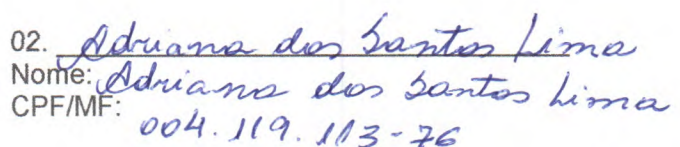 02. Adriana dos Santos Lima
Nome: Adriana dos Santos Lima
CPF/MF: 004.119.113-76